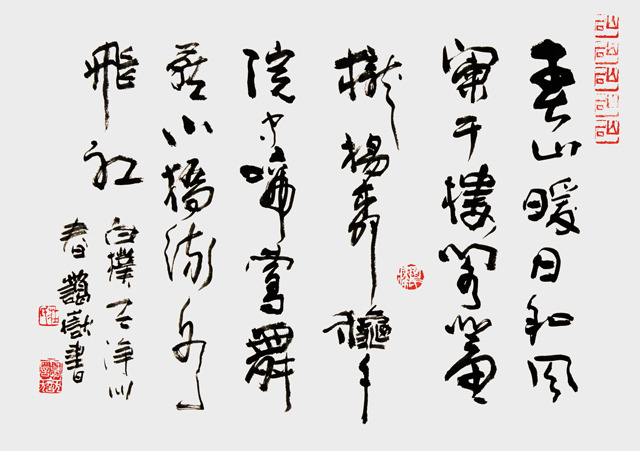 春山暖日和風
闌干樓閣簾
櫳楊柳龝千
院中啼鶯舞
燕小橋流水
飛紅
白樸天淨沙
春書